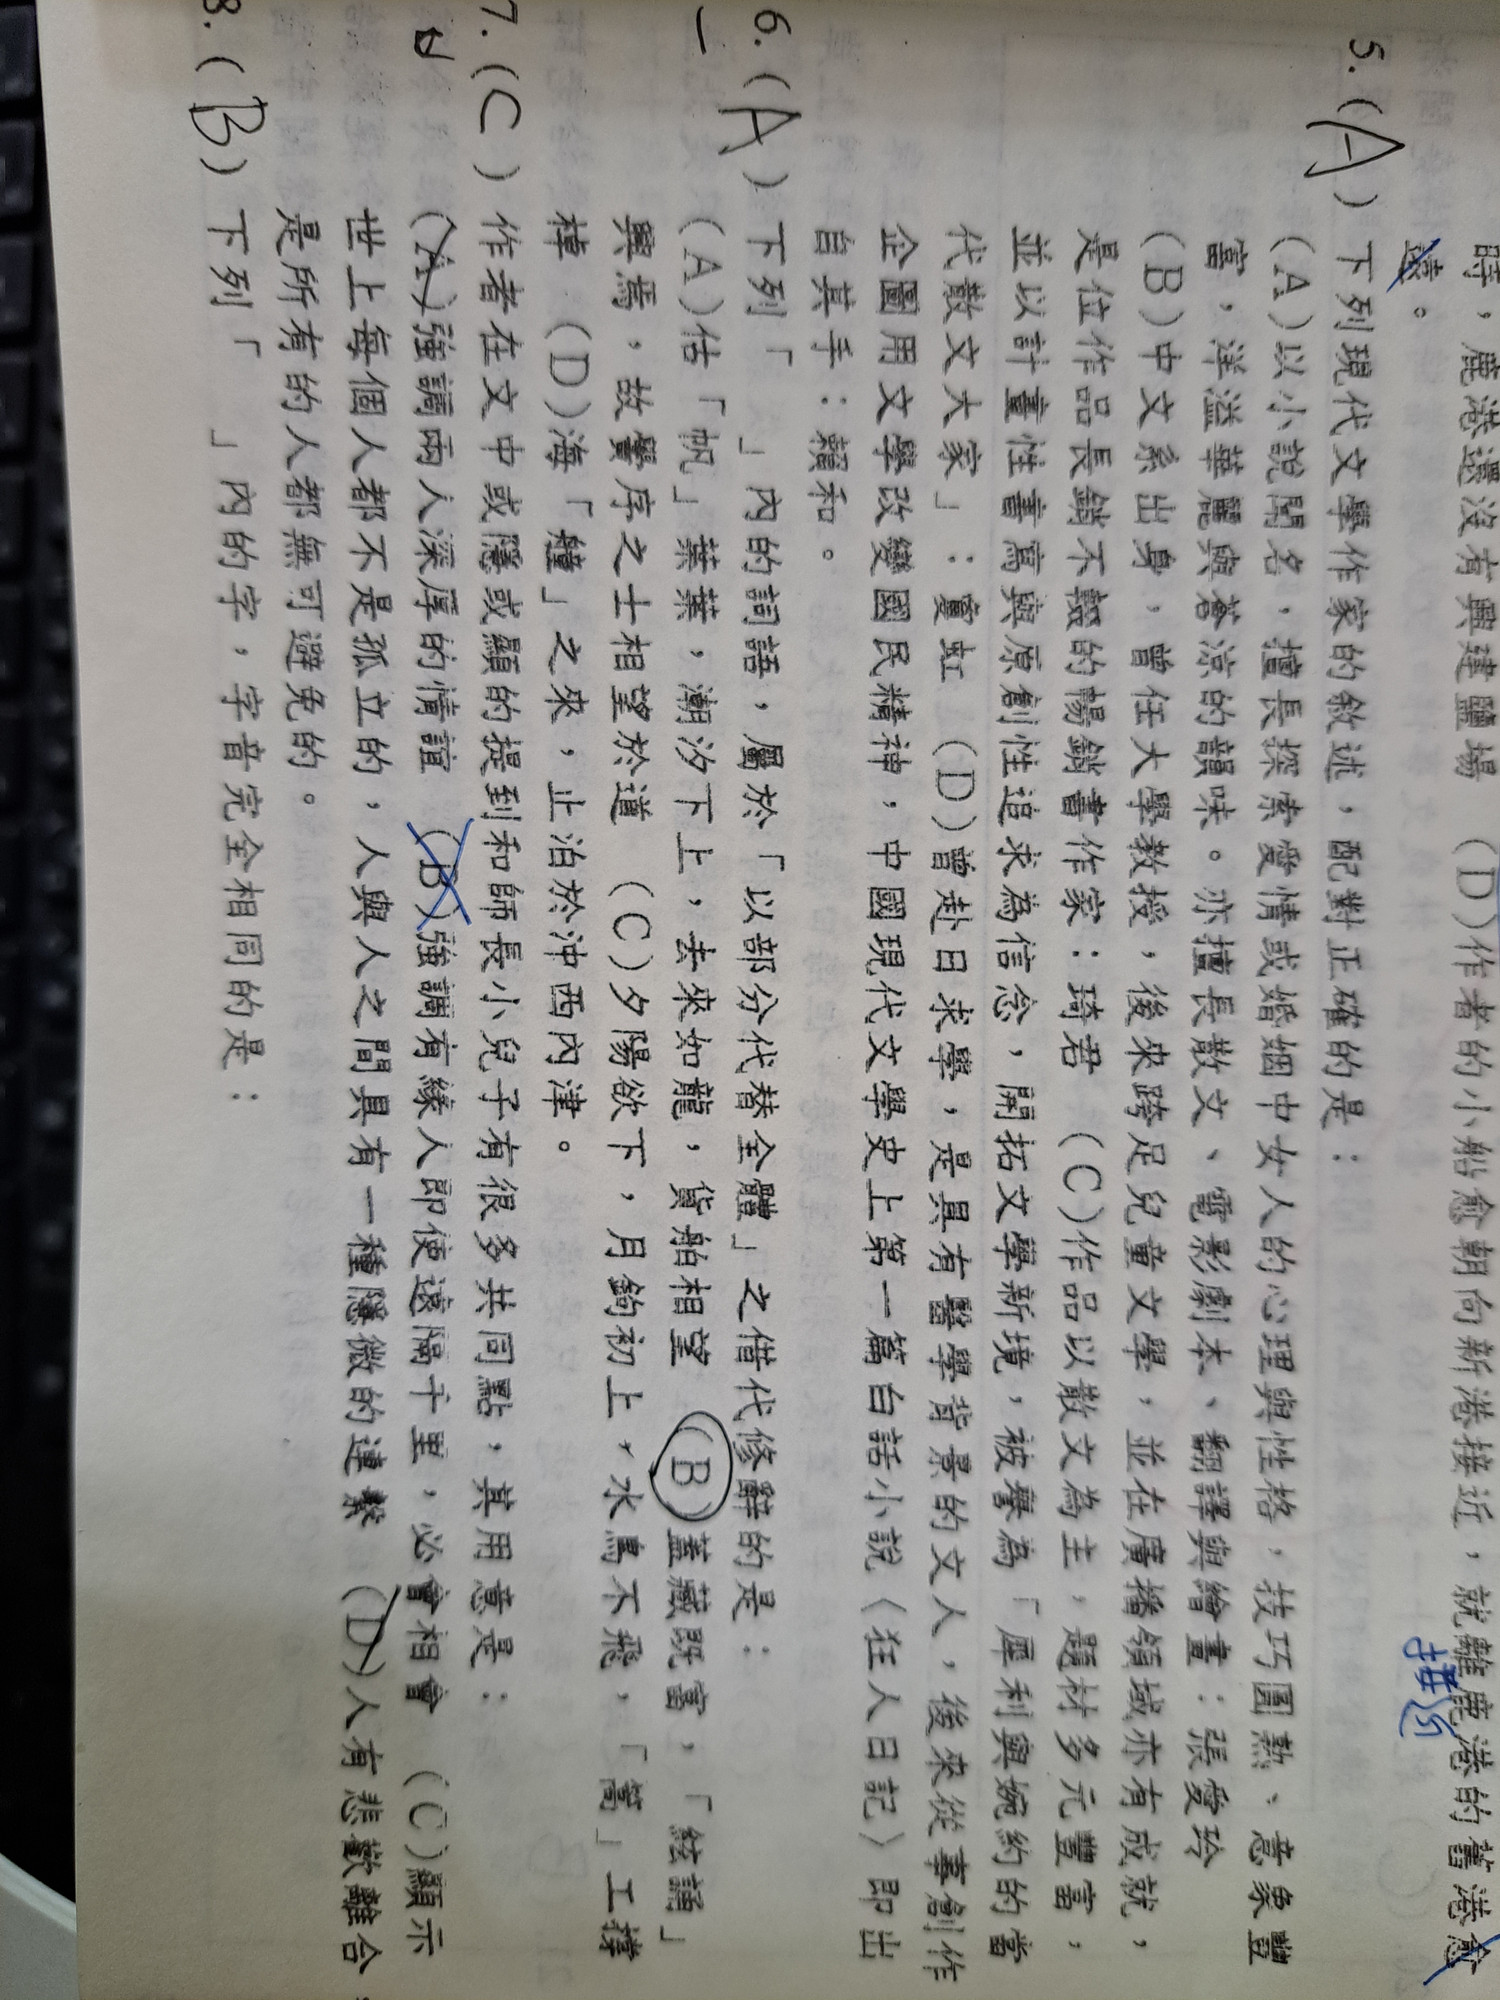 時，鹿港還沒有興建鹽場　(D)作者的小船愈朝向新港接近，就離鹿港的舊港愈
遠。
5.(A)下列現代文學作家的敘述，配對正確的是：
(A)以小說聞名，擅長探索愛情或婚姻中女人的心理與性格，技巧圓熟、意象豐
富，洋溢華麗與蒼涼的韻味。亦擅長散文、電影劇本、翻譯與繪畫：張愛玲
(B)中文系出身，曾任大學教授，後來跨足兒童文學，並在廣播領域亦有成就，
是位作品長銷不輟的暢銷書作家：琦君　(C)作品以散文為主，題材多元豐富，
並以計畫性書寫與原創性追求為信念，開拓文學新境，被譽為「犀利與婉約的當
代散文大家」：敻虹　(D)曾赴日求學，是具有醫學背景的文人，後來從事創作
企圖用文學改變國民精神，中國現代文學史上第一篇白話小說〈狂人日記〉即出
自其手：賴和。
6.(A)下列「　　」內的詞語，屬於「以部分代替全體」之借代修辭的是：
(A)估「帆」葉葉，潮汐下上，去來如龍，貨舶相望　(B)蓋藏既富，「絃誦」
興焉，故黌序之士相望於道　(C)夕陽欲下，月鉤初上，水鳥不飛，「篙」工撐
棹　(D)海「艟」之來，止泊於沖西內津。
7.(C)作者在文中或隱或顯的提到和師長小兒子有很多共同點，其用意是：
(A)強調兩人深厚的情誼　(B)強調有緣人即便遠隔千里，必會相會　(C)顯示
世上每個人都不是孤立的，人與人之間具有一種隱微的連繫　(D)人有悲歡離合，
是所有的人都無可避免的。
8.(B)下列「　　」內的字，字音完全相同的是：